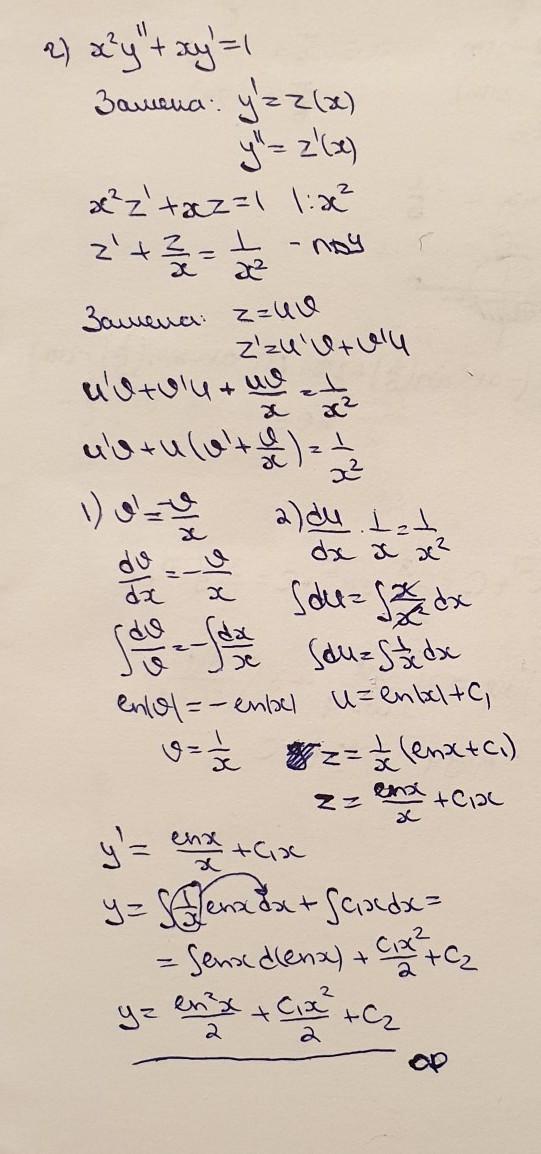 2) x²y'' + xy' = 1
Замена: y' = z(x)
y'' = z'(x)
x²z' + xz = 1 | : x²
z' + z/x = 1/x² - ЛДУ
Замена: z = uv
z' = u'v + v'u
u'v + v'u + uv/x = 1/x²
u'v + u(v' + v/x) = 1/x²
1) v' = -v/x
dv/dx = -v/x
∫dv/v = -∫dx/x
ln|v| = -ln|x|
v = 1/x
2) du/dx · 1/x = 1/x²
∫du = ∫x/x² dx
∫du = ∫1/x dx
u = ln|x| + C₁
z = 1/x (lnx + C₁)
z = lnx/x + C₁x
y' = lnx/x + C₁x
y = ∫1/x lnx dx + ∫C₁x dx =
= ∫lnx d(lnx) + C₁x²/2 + C₂
y = ln²x/2 + C₁x²/2 + C₂
ОР